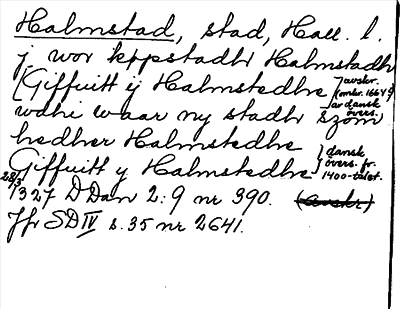 Halmstad, stad, Hall. l.
j wor kppstadhr Halmstadh
(Giffuitt ij Halmstedhe } avskr. omkr. 1664 av dansk övers.
wdhi waar ny stadhr szom
hedher Halmstedhe
Giffuitt y Halmstedhe } dansk övers. fr. 1400-talet.
28/3 1327 DDan 2:9 nr 390. (avskr)
Jfr SD IV s. 35 nr 2641.